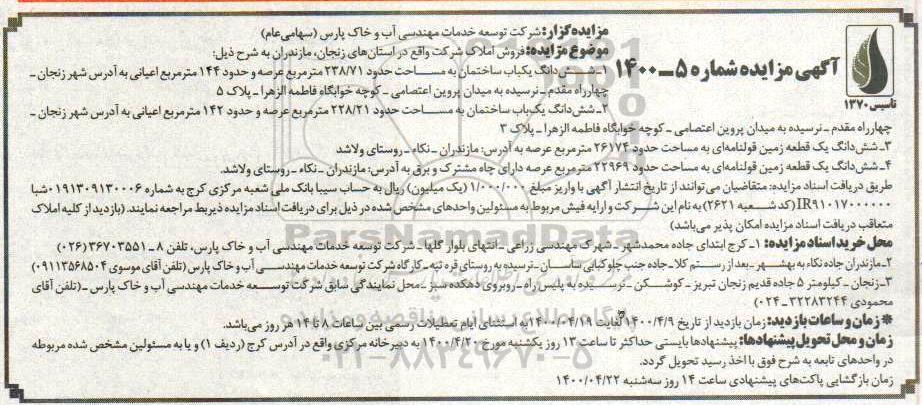 مزایده‌گزار: شرکت توسعه خدمات مهندسی آب و خاک پارس (سهامی‌عام)
موضوع مزایده: فروش املاک شرکت واقع در استان‌های زنجان، مازندران به شرح ذیل:
آگهی مزایده شماره ۵ـ۱۴۰۰
تاسیس ۱۳۷۰
۱ـ شش‌دانگ یکباب ساختمان به مساحت حدود ۲۳۸/۷۱ مترمربع عرصه و حدود ۱۴۴ مترمربع اعیانی به آدرس شهر زنجان ـ
چهارراه مقدم ـ نرسیده به میدان پروین اعتصامی ـ کوچه خوابگاه فاطمه الزهرا ـ پلاک ۵
۲ـ شش‌دانگ یک‌باب ساختمان به مساحت حدود ۲۲۸/۲۱ مترمربع عرصه و حدود ۱۴۲ مترمربع اعیانی به آدرس شهر زنجان ـ
چهارراه مقدم ـ نرسیده به میدان پروین اعتصامی ـ کوچه خوابگاه فاطمه الزهرا ـ پلاک ۳
۳ـ شش‌دانگ یک قطعه زمین قولنامه‌ای به مساحت حدود ۲۶۱۷۴ مترمربع عرصه به آدرس: مازندران ـ نکاء ـ روستای ولاشد
۴ـ شش‌دانگ یک قطعه زمین قولنامه‌ای به مساحت حدود ۲۲۹۶۹ مترمربع عرصه دارای چاه مشترک و برق به آدرس: مازندران ـ نکاء ـ روستای ولاشد.
طریق دریافت اسناد مزایده: متقاضیان می‌توانند از تاریخ انتشار آگهی با واریز مبلغ ۱/۰۰۰/۰۰۰ (یک میلیون) ریال به حساب سیبا بانک ملی شعبه مرکزی کرج به شماره ۰۱۹۱۳۰۹۱۳۰۰۰۶ شبا
IR۹۱۰۱۷۰۰۰۰۰۰ (کد شعبه ۲۶۲۱) به نام این شرکت و ارایه فیش مربوط به مسئولین واحدهای مشخص شده در ذیل برای دریافت اسناد مزایده ذیربط مراجعه نمایند. (بازدید از کلیه املاک
متعاقب دریافت اسناد مزایده امکان پذیر می‌باشد)
محل خرید اسناد مزایده: ۱ـ کرج ابتدای جاده محمدشهر ـ شهرک مهندسی زراعی ـ انتهای بلوار گلها ـ شرکت توسعه خدمات مهندسی آب و خاک پارس، تلفن ۸ ـ ۳۶۷۰۳۵۵۱ (۰۲۶)
۲ـ مازندران جاده نکاء به بهشهر ـ بعد از رستم کلا ـ جاده جنب چلوکبابی ساسان ـ نرسیده به روستای قره تپه ـ کارگاه شرکت توسعه خدمات مهندسی آب و خاک پارس (تلفن آقای موسوی ۰۹۱۱۳۵۶۸۵۰۴)
۳ـ زنجان ـ کیلومتر ۵ جاده قدیم زنجان تبریز ـ کوشکن ـ نرسیده به پلیس راه ـ روبروی دهکده سبز ـ محل نمایندگی سابق شرکت توسعه خدمات مهندسی آب و خاک پارس ـ (تلفن آقای
محمودی ۳۲۲۸۳۲۴۴ ـ ۰۲۴)
* زمان و ساعات بازدید: زمان بازدید از تاریخ ۱۴۰۰/۴/۹ لغایت ۱۴۰۰/۰۴/۱۹ به استثنای ایام تعطیلات رسمی بین ساعات ۸ تا ۱۴ هر روز می‌باشد.
زمان و محل تحویل پیشنهادها: پیشنهادها بایستی حداکثر تا ساعت ۱۳ روز یکشنبه مورخ ۱۴۰۰/۴/۲۰ به دبیرخانه مرکزی واقع در آدرس کرج (ردیف ۱) و یا به مسئولین مشخص شده مربوطه
در واحدهای تابعه به شرح فوق با اخذ رسید تحویل گردد.
زمان بازگشایی پاکت‌های پیشنهادی ساعت ۱۴ روز سه‌شنبه ۱۴۰۰/۰۴/۲۲
ParsNamadData
پایگاه اطلاع رسانی مناقصه و مزایده
۰۲۱-۸۸۳۴۹۶۷۰-۵